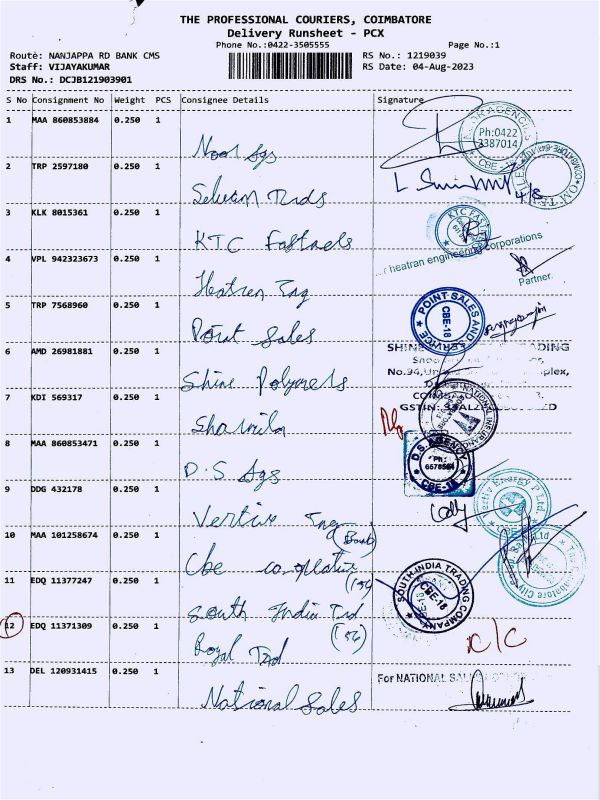 THE PROFESSIONAL COURIERS, COIMBATORE
Delivery Runsheet - PCX
Phone No.:0422-3505555 Page No.:1
Route: NANJAPPA RD BANK CMS RS No.: 1219039
Staff: VIJAYAKUMAR RS Date: 04-Aug-2023
DRS No.: DCJB121903901
S No Consignment No Weight PCS Consignee Details Signature
1 MAA 860853884 0.250 1
Noor Ags
Ph:0422
2387014
CBE - 18
2 TRP 2597180 0.250 1
Selvam Trds
4/8
3 KLK 8015361 0.250 1
KTC Fastnels
KTC FAST
heatran engineering corporations
4 VPL 942323673 0.250 1
Partner.
Heatren Eng
5 TRP 7568960 0.250 1
Point Sales
POINT SALES AND SERVICE
CBE-18
6 AMD 26981881 0.250 1
SHINE DING
No.94, plex,
Shine Polymers
GSTIN: 33
7 KDI 569317 0.250 1
Sharmila
8 MAA 860853471 0.250 1
D.S Ags
D.S. AGENCY
Ph:
CBE-18
9 DDG 432178 0.250 1
Vertiv Eng
Energy P Ltd.
10 MAA 101258674 0.250 1
(Bank)
Cbe co-oprative
11 EDQ 11377247 0.250 1
South India Trd
SOUTH INDIA TRADING COMPANY
CBE-18
12 EDQ 11371309 0.250 1
Royal Trd
R/C
13 DEL 120931415 0.250 1
For NATIONAL SAL
National Sales